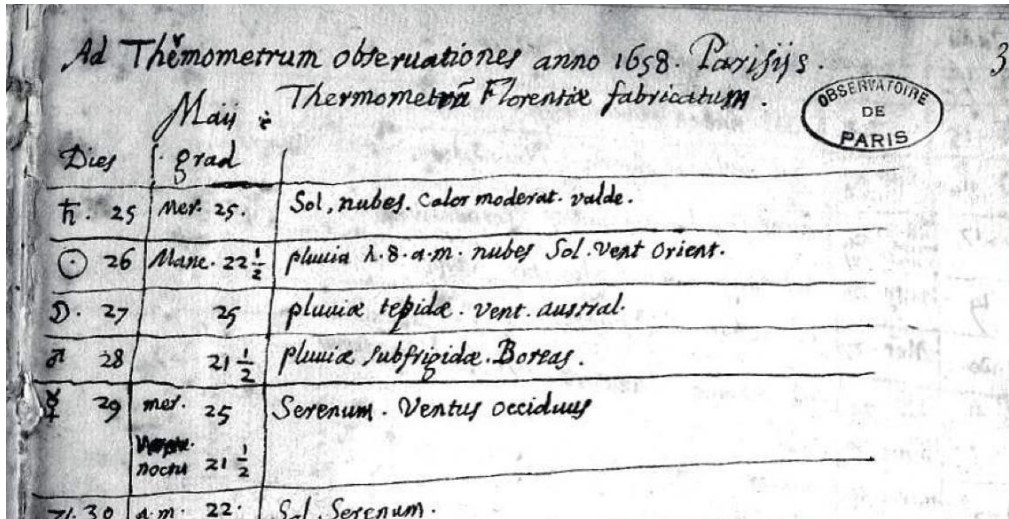 Ad Thermometrum obseruationes anno 1658. Parisijs. 3
Thermometrũ Florentiæ fabricatum.
Maij
OBSERVATOIRE
DE
PARIS
Dies grad
♄. 25 Mer. 25. Sol, nubes. Calor moderat. valde.
☉ 26 Mane. 22 1/2 pluuia h. 8. a.m. nubes Sol. Vent Orient.
☽. 27 25 pluuiæ tepidæ. vent. austral.
♂ 28 21 1/2 pluuiæ subfrigidæ. Boreas.
☿ 29 mer. 25 Serenum. Ventus occiduus
noctu 21 1/2
♃. 30 a.m. 22. Sol. Serenum.